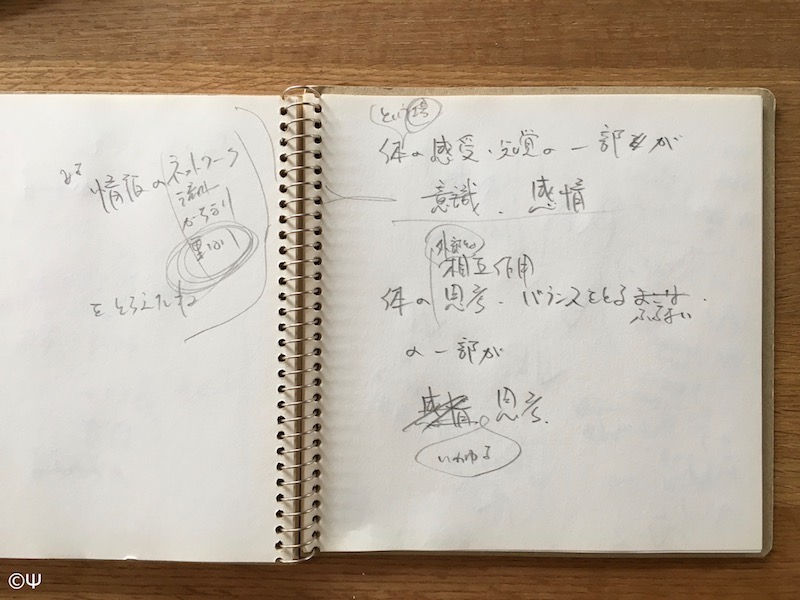 情報のネットワーク
重心
をとらえたね
という場
体の感受・知覚の一部が
意識、感情
外部との
相互作用
体の思考・バランスをとる
ふるまい
の一部が
思考
いわゆる
©Ψ